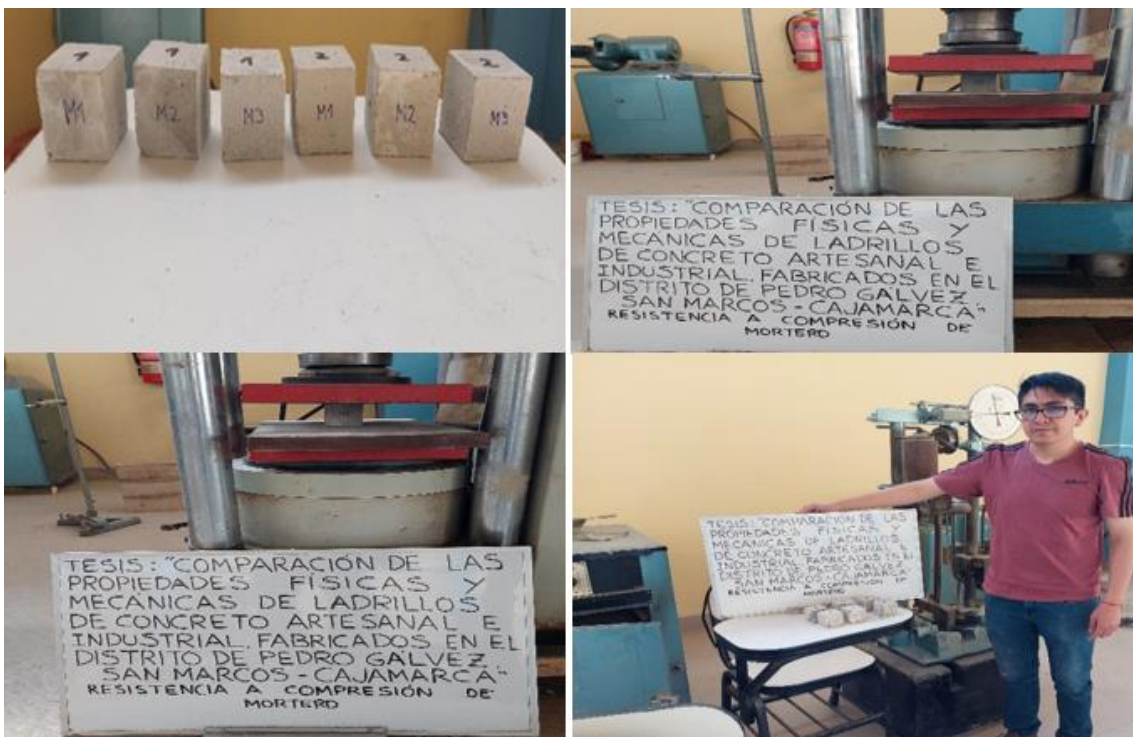 1 1 1 2 2 2
M1 M2 M3 M1 M2 M3
TESIS: "COMPARACIÓN DE LAS
PROPIEDADES FÍSICAS Y
MECÁNICAS DE LADRILLOS
DE CONCRETO ARTESANAL E
INDUSTRIAL. FABRICADOS EN EL
DISTRITO DE PEDRO GALVEZ
SAN MARCOS - CAJAMARCA"
RESISTENCIA A COMPRESIÓN DE
MORTERO
TESIS: "COMPARACIÓN DE LAS
PROPIEDADES FÍSICAS Y
MECÁNICAS DE LADRILLOS
DE CONCRETO ARTESANAL E
INDUSTRIAL. FABRICADOS EN EL
DISTRITO DE PEDRO GALVEZ
SAN MARCOS - CAJAMARCA"
RESISTENCIA A COMPRESIÓN DE
MORTERO
TESIS: "COMPARACIÓN DE LAS
PROPIEDADES FÍSICAS Y
MECÁNICAS DE LADRILLOS
DE CONCRETO ARTESANAL E
INDUSTRIAL. FABRICADOS EN EL
DISTRITO DE PEDRO GALVEZ
SAN MARCOS - CAJAMARCA
RESISTENCIA A COMPRESIÓN DE
MORTERO